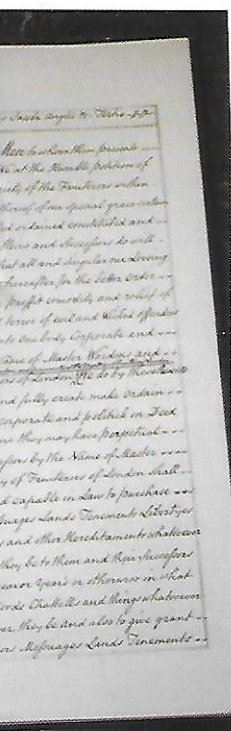 Men to whom these presents
We at the Humble petition of
of the Fruiterers within
thereof of our special grace certain
ordained constituted and
Heirs and Successors do will
that all and singular our Loving
hereafter for the better order
proffit comodity and relief of
terror of evil and Wicked offenders
into one body Corporate and
name of Master Wardens and
of London We do by these
and fully create make ordain
corporate and politick in Deed
they may have perpetual
by the Name of Master
of Fruiterers of London shall
capable in Law to purchase
Lands Tenements Libertyes
and other Hereditaments whatsoever
they be to them and their Successors
or Years or otherwise in what
Chattells and things whatsoever
they be and also to give grant
Messuages Lands Tenements